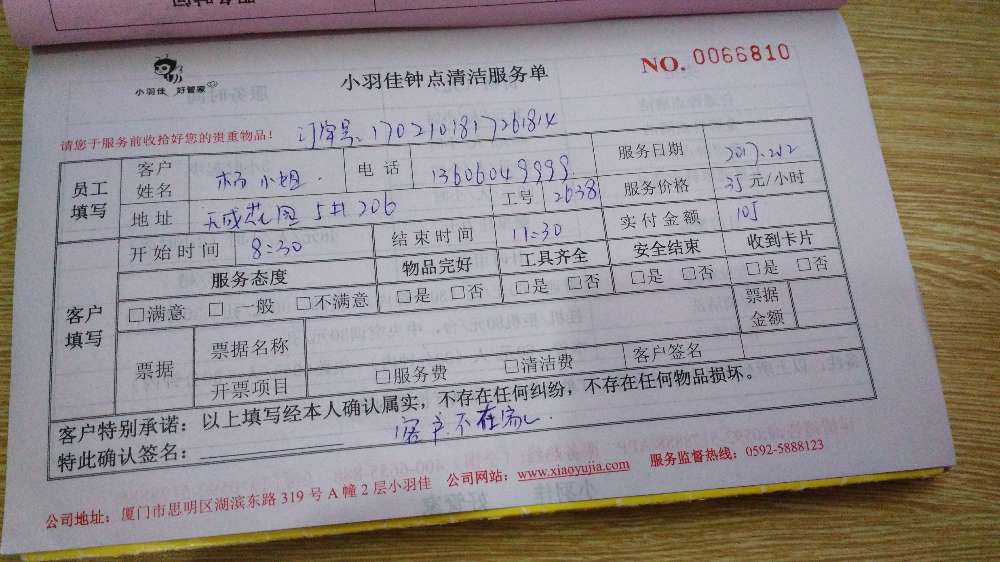 小羽佳 好管家
小羽佳钟点清洁服务单
NO. 0066810
请您于服务前收拾好您的贵重物品!
订单号:1702101817261814
员工填写 客户姓名 杨小姐 电话 13606049999 服务日期 2017.2.12
地址 天成花园 5#206 工号 2638 服务价格 35元/小时
客户填写 开始时间 8:30 结束时间 11:30 实付金额 105
服务态度 物品完好 工具齐全 安全结束 收到卡片
□满意 □一般 □不满意 □是 □否 □是 □否 □是 □否 □是 □否
票据 票据名称 票据金额
开票项目 □服务费 □清洁费 客户签名
客户特别承诺:以上填写经本人确认属实,不存在任何纠纷,不存在任何物品损坏。
特此确认签名: 客户不在家
公司地址:厦门市思明区湖滨东路 319 号 A 幢 2 层小羽佳 公司网站:www.xiaoyujia.com 服务监督热线:0592-5888123